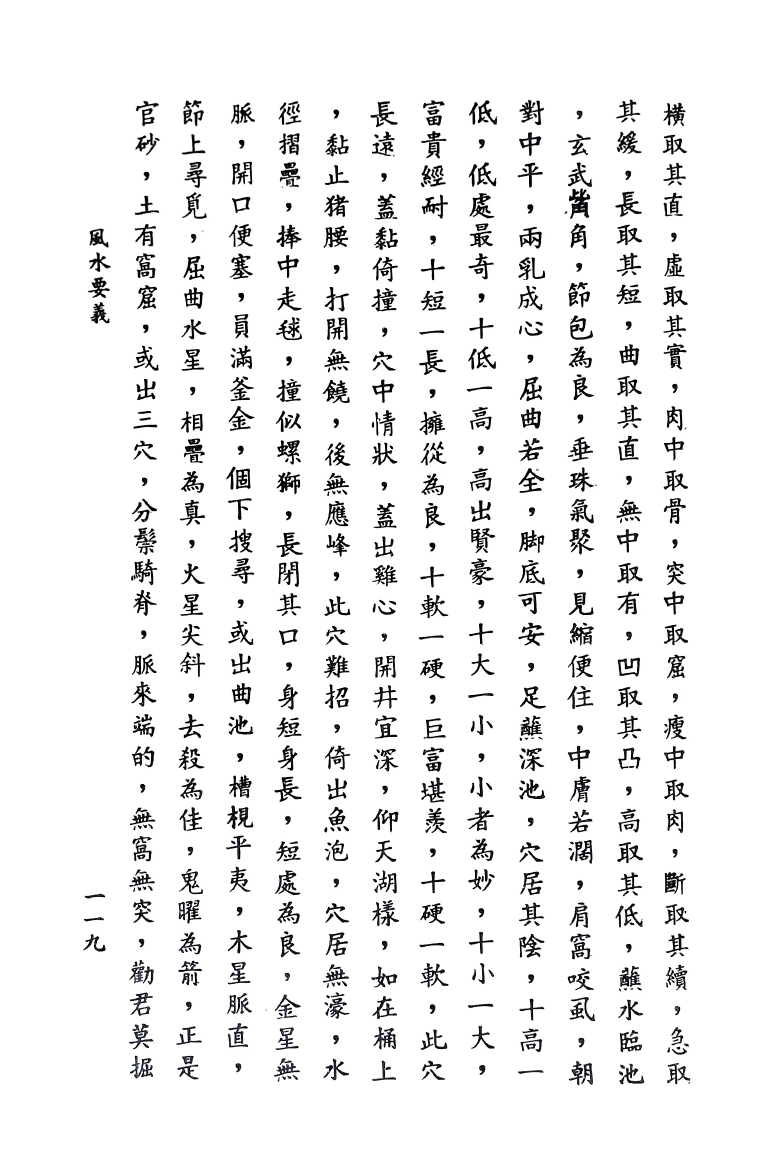 橫取其直，虛取其實，肉中取骨，突中取窟，瘦中取肉，斷取其續，急取
其緩，長取其短，曲取其直，無中取有，凹取其凸，高取其低，蘸水臨池
，玄武觜角，節包為良，垂珠氣聚，見縮便住，中膚若濶，肩窩咬虱，朝
對中平，兩乳成心，屈曲若全，脚底可安，足蘸深池，穴居其陰，十高一
低，低處最奇，十低一高，高出賢豪，十大一小，小者為妙，十小一大，
富貴經耐，十短一長，擁從為良，十軟一硬，巨富堪羨，十硬一軟，此穴
長遠，蓋黏倚撞，穴中情狀，蓋出雞心，開井宜深，仰天湖樣，如在桶上
，黏止猪腰，打開無饒，後無應峰，此穴難招，倚出魚泡，穴居無濠，水
徑摺疊，捧中走毬，撞似螺獅，長閉其口，身短身長，短處為良，金星無
脈，開口便塞，員滿釜金，個下搜尋，或出曲池，槽梘平夷，木星脈直，
節上尋覓，屈曲水星，相疊為真，火星尖斜，去殺為佳，鬼曜為箭，正是
官砂，土有窩窟，或出三穴，分鬃騎脊，脈來端的，無窩無突，勸君莫掘
風水要義
一一九